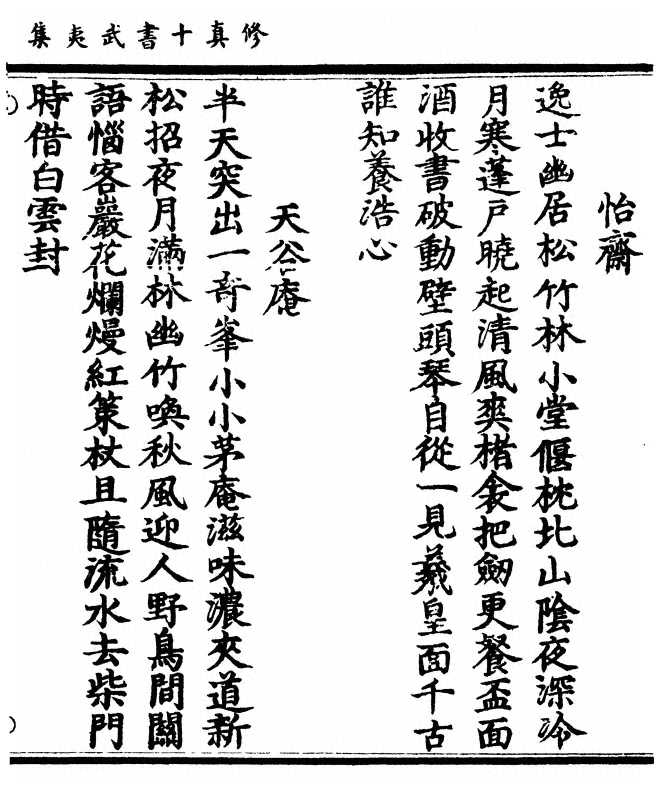 修真十書武夷集
怡齋
逸士幽居松竹林小堂偃枕北山陰夜深冷
月寒蓬戶曉起清風爽楮衾把劒更餐盃面
酒收書破動壁頭琴自從一見羲皇面千古
誰知養浩心
天谷庵
半天突出一奇峯小小茅庵滋味濃夾道新
松招夜月滿林幽竹喚秋風迎人野鳥間關
語惱客巖花爛熳紅策杖且隨流水去柴門
時借白雲封